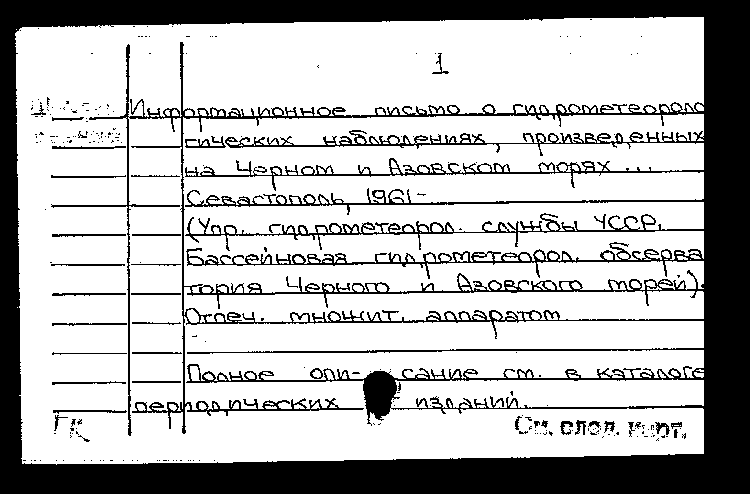 1
Информационное письмо о гидрометеороло
гических наблюдениях, произведенных
на Черном и Азовском морях ...
Севастополь, 1961-
(Упр. гидрометеорол. службы УССР.
Бассейновая гидрометеорол. обсерва
тория Черного и Азовского морей).
Отпеч. множит. аппаратом
Полное опи- сание см. в каталоге
периодических изданий.
ГК
См. след. карт.